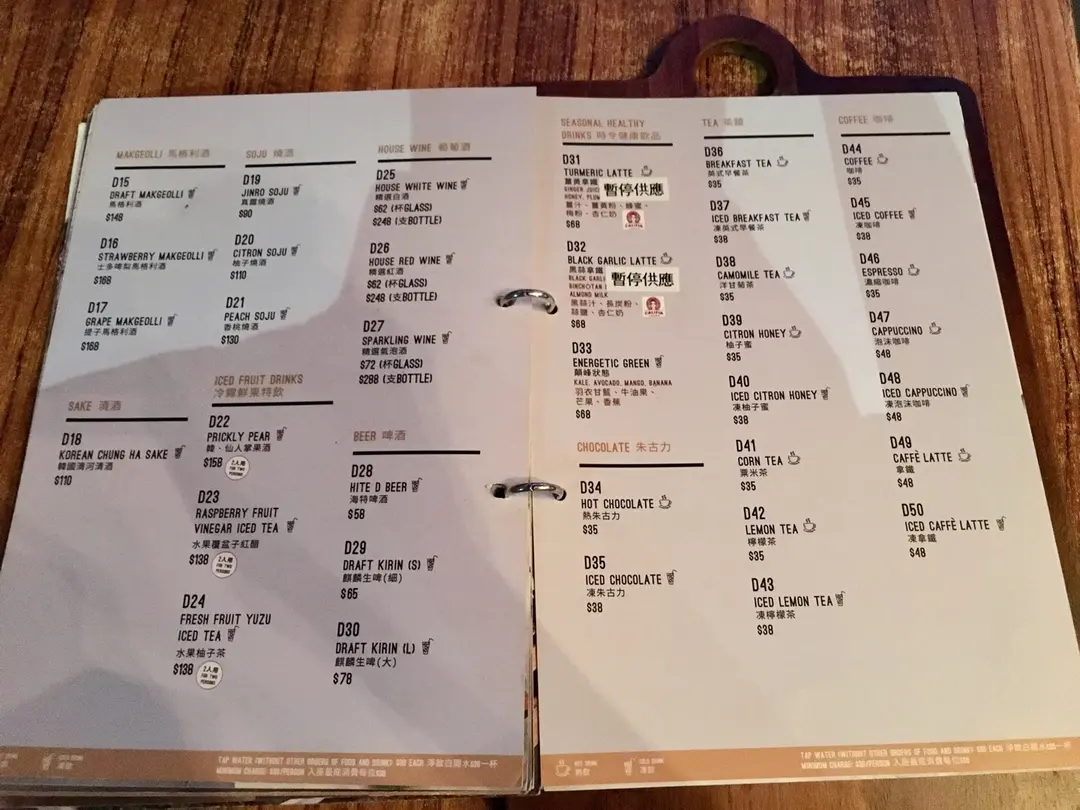 MAKGEOLLI 馬格利酒
D15
DRAFT MAKGEOLLI
馬格利酒
$148
D16
STRAWBERRY MAKGEOLLI
士多啤梨馬格利酒
$168
D17
GRAPE MAKGEOLLI
提子馬格利酒
$168
SAKE 清酒
D18
KOREAN CHUNG HA SAKE
韓國清河清酒
$110
SOJU 燒酒
D19
JINRO SOJU
真露燒酒
$90
D20
CITRON SOJU
柚子燒酒
$110
D21
PEACH SOJU
香桃燒酒
$130
ICED FRUIT DRINKS
冷霜鮮果特飲
D22
PRICKLY PEAR
韓・仙人掌果酒
$158 2人用
FOR TWO
PERSONS
D23
RASPBERRY FRUIT
VINEGAR ICED TEA
水果覆盆子紅醋
$138 2人用
FOR TWO
PERSONS
D24
FRESH FRUIT YUZU
ICED TEA
水果柚子茶
$138 2人用
FOR TWO
PERSONS
HOUSE WINE 葡萄酒
D25
HOUSE WHITE WINE
精選白酒
$62 (杯GLASS)
$248 (支BOTTLE)
D26
HOUSE RED WINE
精選紅酒
$62 (杯GLASS)
$248 (支BOTTLE)
D27
SPARKLING WINE
精選氣泡酒
$72 (杯GLASS)
$288 (支BOTTLE)
BEER 啤酒
D28
HITE D BEER
海特啤酒
$58
D29
DRAFT KIRIN (S)
麒麟生啤(細)
$65
D30
DRAFT KIRIN (L)
麒麟生啤(大)
$78
TAP WATER (WITHOUT OTHER ORDERS OF FOOD AND DRINK) $20 EACH 淨飲白開水$20一杯
MINIMUM CHARGE: $30/PERSON 入座最低消費每位$30
SEASONAL HEALTHY
DRINKS 時令健康飲品
D31
TURMERIC LATTE
薑黃拿鐵
暫停供應
GINGER JUICE
HONEY, PLUM
薑汁、薑黃粉、蜂蜜、
梅粉、杏仁奶
$68
D32
BLACK GARLIC LATTE
黑蒜拿鐵
暫停供應
BLACK GARLI
BINCHOTAN
ALMOND MILK
黑蒜汁、長炭粉、
蒜鹽、杏仁奶
$68
D33
ENERGETIC GREEN
顛峰狀態
KALE, AVOCADO, MANGO, BANANA
羽衣甘藍、牛油果、
芒果、香蕉
$68
CHOCOLATE 朱古力
D34
HOT CHOCOLATE
熱朱古力
$35
D35
ICED CHOCOLATE
凍朱古力
$38
TEA 茶類
D36
BREAKFAST TEA
英式早餐茶
$35
D37
ICED BREAKFAST TEA
凍英式早餐茶
$38
D38
CAMOMILE TEA
洋甘菊茶
$35
D39
CITRON HONEY
柚子蜜
$35
D40
ICED CITRON HONEY
凍柚子蜜
$38
D41
CORN TEA
粟米茶
$35
D42
LEMON TEA
檸檬茶
$35
D43
ICED LEMON TEA
凍檸檬茶
$38
COFFEE 咖啡
D44
COFFEE
咖啡
$35
D45
ICED COFFEE
凍咖啡
$38
D46
ESPRESSO
濃縮咖啡
$35
D47
CAPPUCCINO
泡沫咖啡
$48
D48
ICED CAPPUCCINO
凍泡沫咖啡
$48
D49
CAFFÈ LATTE
拿鐵
$48
D50
ICED CAFFÈ LATTE
凍拿鐵
$48
TAP WATER (WITHOUT OTHER ORDERS OF FOOD AND DRINK) $20 EACH 淨飲白開水$20一杯
MINIMUM CHARGE: $30/PERSON 入座最低消費每位$30